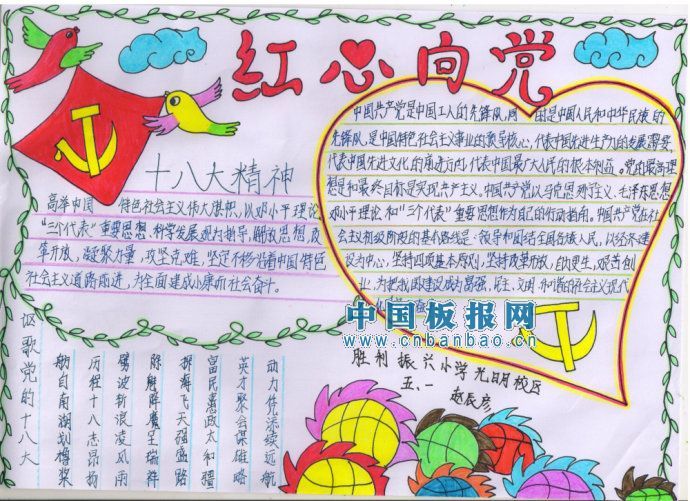 红心向党
十八大精神
高举中国 特色社会主义伟大旗帜，以邓小平理论
“三个代表”重要思想，科学发展观为指导，解放思想，改
革开放，凝聚力量，攻坚克难，坚定不移沿着中国特色
社会主义道路前进，为全面建成小康而社会奋斗。
中国共产党是中国工人的先锋队，同 的是中国人民和中华民族的
先锋队，是中国特色社会主义事业的领导核心，代表中国先进生产力的发展需要，
代表中国先进文化的前进方向，代表中国最广大人民的根本利益。党的最高理
想是和最终目标是实现共产主义。中国共产党以马克思列宁主义、毛泽东思想
邓小平理论和“三个代表”重要思想作为自己的行动指南。中国共产党在社
会主义初级阶段的基本路线是：领导和团结全国各族人民，以经济建
设为中心，坚持四项基本原则，坚持改革开放，自力更生，艰苦创
业，为把我国建设成为富强、民主、文明、和谐的社会主义现代
中国板报网
www.cnbanbao.cn
胜利振兴小学光明校区
五、一
赵辰彦
讴歌党的十八大
舫自南湖划橹桨
历程十八志昂扬
劈波斩浪凌风雨
除魔降魔呈瑞祥
探海飞天强盛路
富民惠政太和疆
英才聚会谋雄略
动力凭添续远航